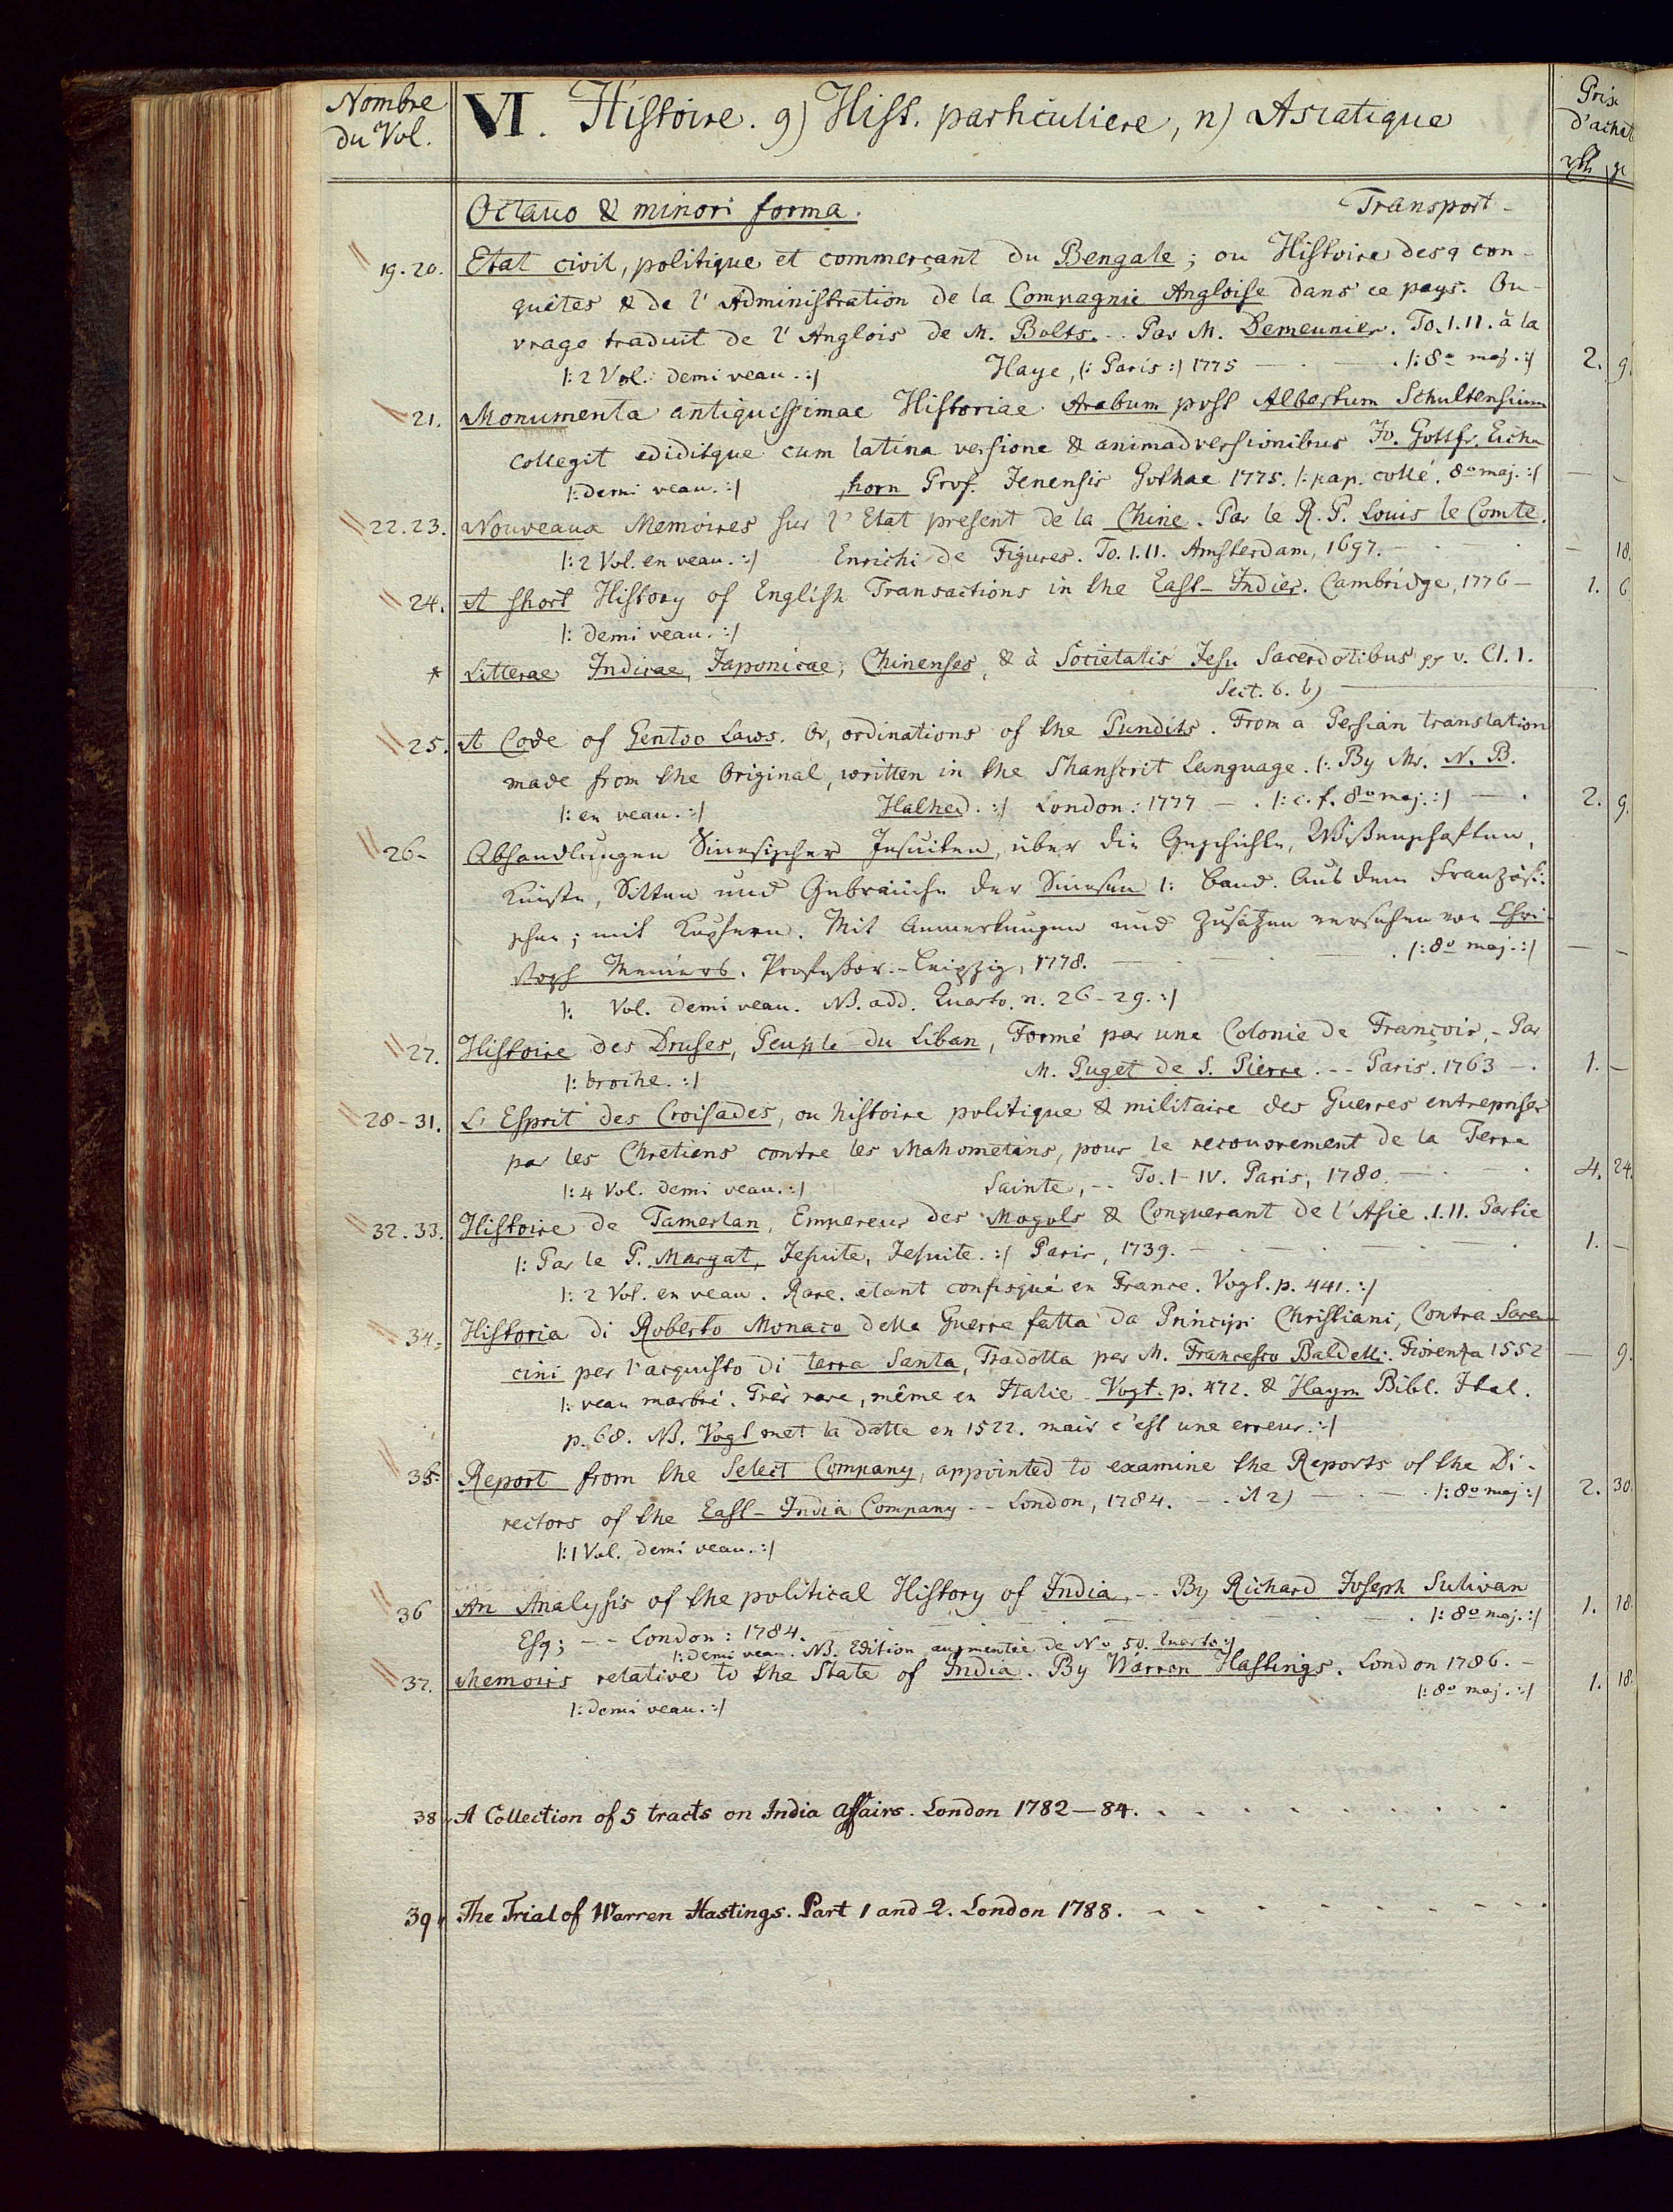 Nombre du Vol.
VI. Histoire. g) Hist. particuliere, n) Asiatique
Prix d'achat
rth. gr
Octavo & minori forma. Transport -
19. 20. Etat civil, politique et commerçant du Bengale; ou Histoire des con-
quêtes & de l'Administration de la Compagnie Angloise dans ce pays. Ou-
vrage traduit de l'Anglois de M. Bolts. - - Par M. Demeunier. To. I. II. à la
|: 2 Vol. demi veau. :| Haye, (: Paris :) 1775 - . |: 8o maj. :| 2. 9.
21. Monumenta antiquissimae Historiae Arabum post Albertum Schultensium
collegit ediditque cum latina versione & animadversionibus Jo. Gottfr. Eich-
|: demi veau. :| horn Prof. Jenensis Gothae 1775. |: pap. collé. 8o maj. :| - -
22. 23. Nouveaux Memoires sur l'Etat present de la Chine. Par le R. P. Louis le Comte.
|: 2 Vol. en veau. :| Enrichi de Figures. To. I. II. Amsterdam, 1697. - - 18.
24. A short History of English Transactions in the East-Indies. Cambridge, 1776 - 1. 6
|: demi veau. :|
* Litterae Indicae, Japonicae, Chinenses, & à Societatis Jesu Sacerdotibus v. Cl. I.
Sect. 6. b)
25. A Code of Gentoo Laws. Or, ordinations of the Pundits. From a Persian translation
made from the Original, written in the Shanscrit Language. |: By Mr. N. B.
|: en veau. :| Halhed. :| London: 1777 - . |: c. f. 8o maj. :| - . 2. 9.
26- Abhandlungen Sinesischer Jesuiten, über die Geschichte, Wißenschaften,
Künste, Sitten und Gebräuche der Sinesen 1: Band. Aus dem Französi-
schen; mit Kupfern. Mit Anmerkungen und Zusätzen versehen von Chri-
stoph Meiners. Profeßor. - Leipzig, 1778. - . |: 8o maj. :| - -
|: Vol. demi veau. NB. add. Quarto. n. 26-29. :|
27. Histoire des Druses, Peuple du Liban, Formé par une Colonie de François, - Par
|: broche. :| M. Puget de S. Pierre. - - Paris. 1763 - . 1. -
28-31. L'Esprit des Croisades, ou histoire politique & militaire des Guerres entreprises
par les Chretiens contre les Mahometans, pour le recouvrement de la Terre
|: 4 Vol. demi veau. :| Sainte, - - To. I-IV. Paris, 1780. - 4. 24.
32. 33. Histoire de Tamerlan, Empereur des Mogols & Conquerant de l'Asie. I. II. Partie
|: Par le P. Margat, Jesuite, Jesuite. :| Paris, 1739. - 1. -
|: 2 Vol. en veau. Rare. étant confisqué en France. Vogt. p. 441. :|
34. Historia di Roberto Monaco della Guerra fatta da Principi Christiani, Contra Sara-
cini per l'acquisto di terra Santa, Tradotta per M. Francesco Baldelli. Fiorenza 1552 - 9.
|: veau marbré. Très rare, même en Italie. Vogt. p. 472. & Haym Bibl. Ital.
p. 68. NB. Vogt met la datte en 1522. mais c'est une erreur. :|
35. Report from the Select Company, appointed to examine the Reports of the Di-
rectors of the East-India Company - - London, 1784. - . |: 8o maj :| 2. 30
|: 1 Vol. demi veau. :|
36 An Analysis of the political History of India, - - By Richard Joseph Sulivan
Esq; - - London: 1784. - . |: 8o maj. :| 1. 18.
|: demi veau. NB. Edition augmentée de No 50. Quarto :|
37. Memoirs relative to the State of India. By Warren Hastings. London 1786. -
|: demi veau. :| |: 8o maj. :| 1. 18.
38, A Collection of 5 tracts on India affairs. London 1782-84.
39, The Trial of Warren Hastings. Part 1 and 2. London 1788.